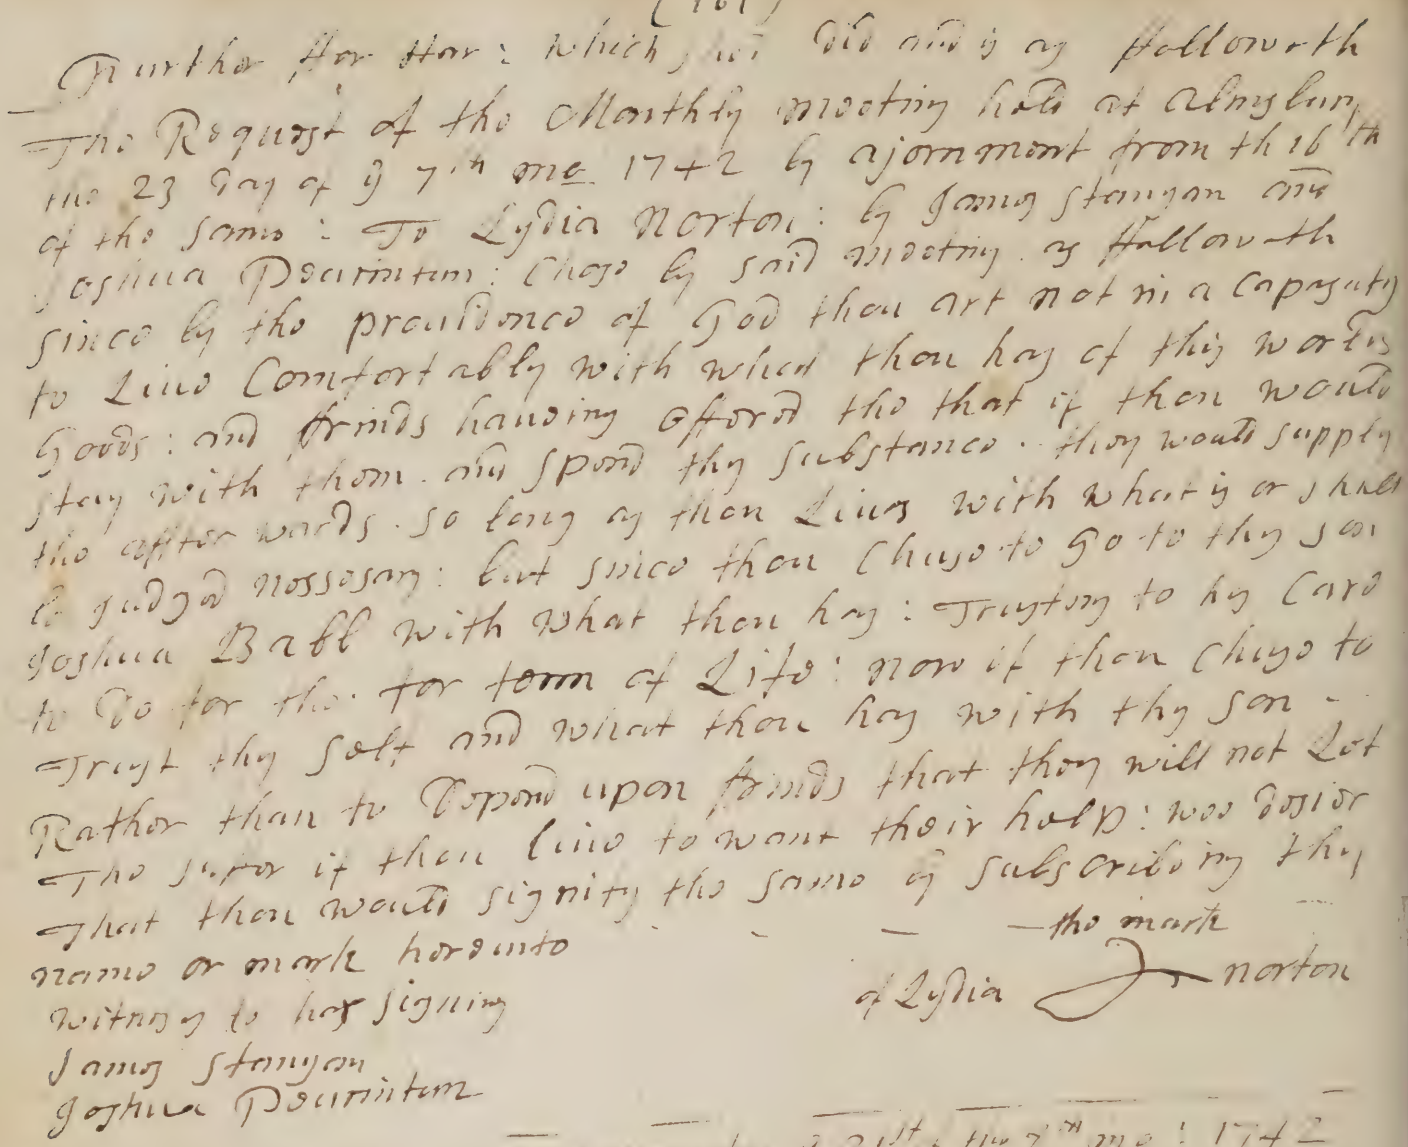 (101)
Further ffor Har : which shee did and is as ffolloweth
The Request of the Monthly meeting held at Almsbury
the 23 day of ye 7th mo 1742 by ajornment from th 16th
of the same : To Lydia Norton : by James Stanyan and
Joshua Peurintun : Chose by said meeting as ffolloweth
since by the prouidence of God thou art not in a capasaty
to Liue Comfortably with what thou has of this worlds
Goods : and ffrinds haueing offered the that if thou would
stay with them and spend thy substance . they would supply
the affter wards . so long as thou Liues with what is or shall
be judged nessesary : but since thou Chuse to Go to thy son
Joshua Babb with what thou has : Trusting to his Care
to Do for the . for term of Life : now if thou Chuse to
Trust thy self and what thou has with thy son -
Rather than to Depend upon ffrinds that they will not Let
The sufer if thou liue to want their help : wee desier
That thou would signify the same by subscribeing thy
name or mark hereunto
the mark
of Lydia Norton
witness to har signing
James Stanyan
Joshua Peurintun
mo : 1742